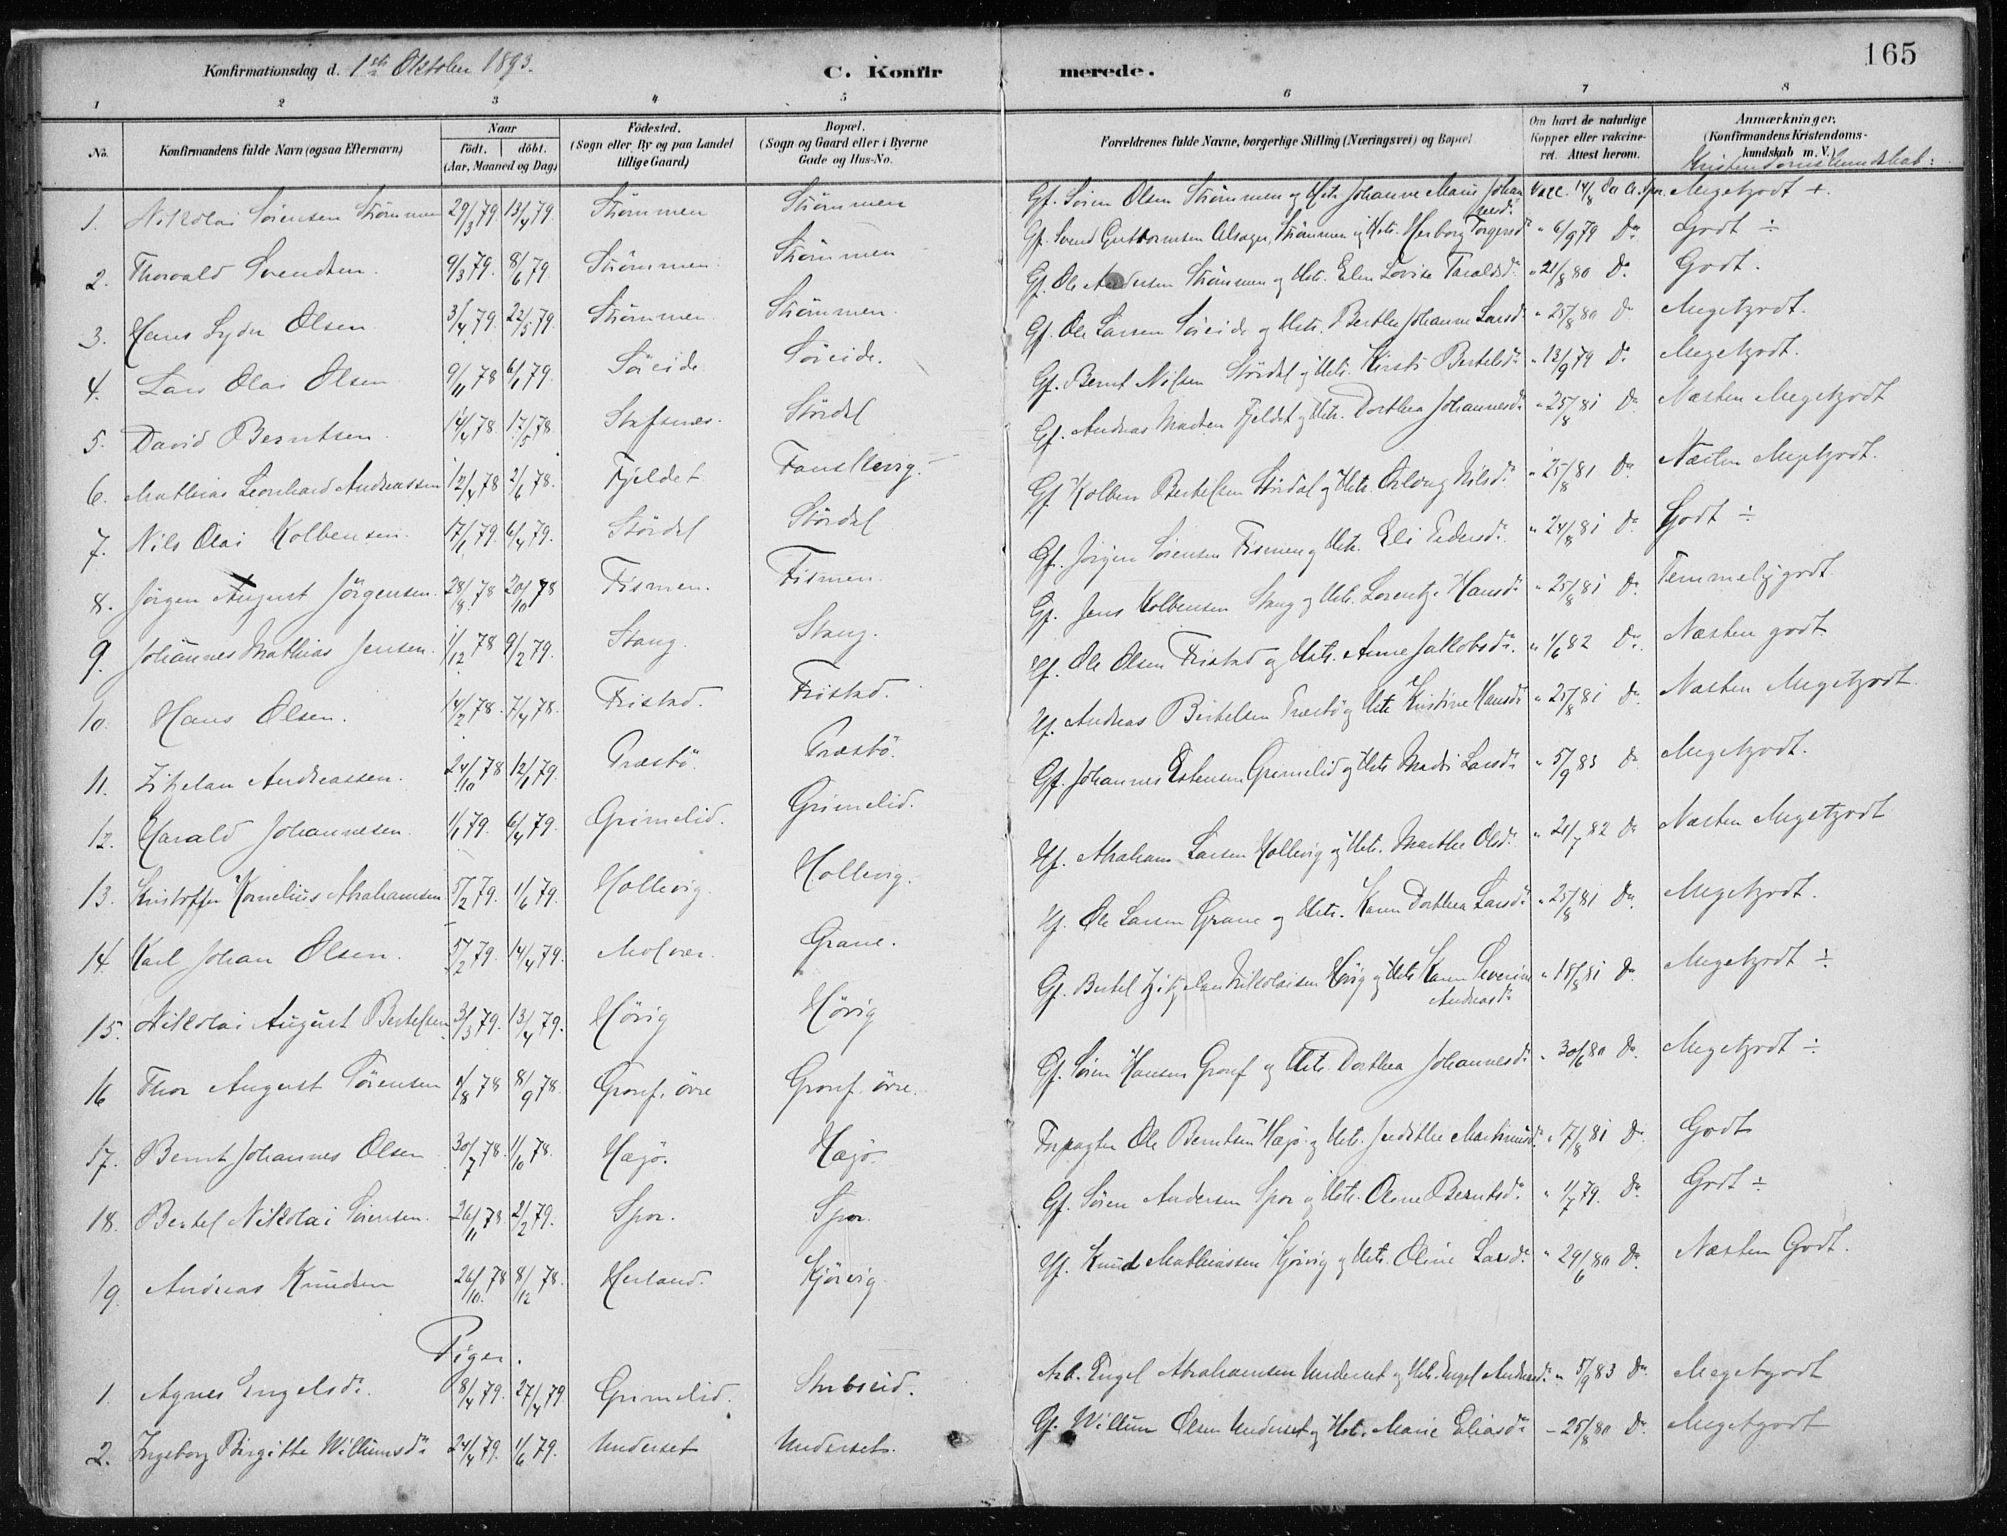 165
Konfirmationsdag d. 1ste Oktober 1893.
C. Konfirmerede.
1 2 3 4 5 6 7 8
No. Konfirmandens fulde Navn (ogsaa Efternavn) Naar födt. döbt. (Aar, Maaned og Dag) Födested. (Sogn eller By og paa Landet tillige Gaard) Bopæl. (Sogn og Gaard eller i Byerne Gade og Hus-No. Forældrenes fulde Navne, borgerlige Stilling (Næringsvei) og Bopæl Om havt de naturlige Kopper eller vakcineret. Attest herom. Anmærkninger. (Konfirmandens Kristendomskundskab m. V.)
Kristendomskundskab:
1. Nikolai Sörensen Strömmen 29/3 79. 13/4 79. Strömmen Strömmen Gf. Sören Olsen Strömmen og Hstr. Johanne Marie Johannesdr Vacc. 14/8 Megetgodt +.
2. Thorvald Svendsen. 9/3 79. 8/6 79. Strömmen Strömmen Gf. Svend Guttormsen Alsager, Strömmen og Hstr. Herborg Torgersdr " 6/9 79 Do Godt ÷
3. Hans Lyder Olsen 3/4 79. 22/5 79. Strömmen Strömmen. Gf. Ole Andersen Strömmen og Hstr. Elen Lovise Taraldsdr " 21/8 80 Do. Godt.
4. Lars Olai Olsen 9/11 78 6/1 79. Söreide Söreide. Gf. Ole Larsen Söreide og Hstr. Berthe Johanne Larsdr " 25/8 80 Do Megetgodt.
5. David Berntsen. 14/4 78. 17/5 78. Stafsnes. Stördal Gf. Bernt Nilsen Stördal og Hstr. Kirsti Bertelsdr " 13/9 79 Do. Megetgodt.
6. Mathias Leonhard Andreassen 12/4 78 2/6 78. Fjeldet Gf. Andreas Madsen Fjeldet og Hstr. Dorthea Johannesdr " 25/8 81 Do Næsten Megetgodt
7. Nils Olai Kolbensen. 17/1 79. 6/4 79. Stördal Stördal Gf. Kolben Bertelsen Stördal og Hstr. Nilsdr " 25/8 81 Do. Næsten Megetgodt.
8. Jörgen August Jörgensen. 28/8 78 20/10 78 Tismen. Tismen. Gf. Jörgen Sörensen Tismen og Hstr. Eli Pedersdr. " 24/8 81 Do Godt ÷
9. Johannes Mathias Jensen. 1/12 78 9/2 79. Stang. Stang. Gf. Jens Kolbensen Stang og Hstr. Lorentze Hansdr " 25/8 81 Do. Temmelig godt
10. Hans Olsen. 14/2 78. 7/4 78. Tristad. Tristad. Hf. Ole Olsen Tristad og Hstr. Anne Jakobsdr. " 1/6 82 Do. Næsten godt
11. Zikelan Andreassen. 24/10 78 12/1 79. Præstö. Præstö. Hf. Andreas Bertelsen Præstö og Hstr Kristine Hansdr " 25/8 81 Do. Næsten Megetgodt.
12. Harald Johannesen. 1/1 79. 6/4 79. Grimelid. Grimelid. Gf. Johannes Estensen Grimelid og Hstr Madri Larsdr " 5/9 83 Do Megetgodt.
13. Kristoffer Kornelius Abrahamsen 5/2 79. 1/6 79. Hollevig. Hollevig. Hf. Abraham Larsen Hollevig og Hstr. Marthe Olsdr. " 21/7 82 Do Næsten Megetgodt
14. Karl Johan Olsen. 5/2 79. 14/4 79. Molvær Grane. Hf. Ole Larsen Grane og Hstr. Karen Dorthea Larsdr " 25/8 81 Do. Megetgodt.
15. Nikolai August Bertelsen 3/3 79. 13/4 79. Hörig Hörig Gf. Bertel Zikelan Nikolaisen Hörig og Hstr Karen Severine Andreasdr " 18/8 81 Do. Megetgodt ÷
16 Thor August Sörensen 1/8 78 8/9 78. Gronf. övre Gronf. övre. Gf. Sören Hansen Gronf og Hstr Dorthea Johannesdr " 30/6 80 Do. Megetgodt ÷.
17. Bernt Johannes Olsen 30/7 78. 1/10 78. Hægö. Hægö. Forpagter Ole Berntsen Hægö og Hstr. Judithe Martinusdr. " 7/8 81 Do. Godt
18. Bertel Nikolai Sörensen. 26/11 78 2/2 79. Spor. Spor. Gf. Sören Andersen Spor og Hstr. Olene Berntsdr. " 1/7 79. Do. Godt ÷
19. Andreas Knudsen 26/10 78 8/12 78. Herland. Kjörvig. Hf. Knud Mathiassen Kjörvig og Hstr. Oline Larsdr. " 29/6 80 Do. Næsten Godt.
Piger.
1. Agnes Engelsdr. 8/4 79. 27/4 79 Grimelid. Stubseid. Arb. Engel Abrahamsen Underset og Hstr. Engel Andreasdr " 5/9 83 Do Megetgodt
2. Ingeborg Birgitte Willumsdr 24/4 79. 1/6 79. Underset Underset. Gf. Willum Olsen Underset og Hstr. Marie Eliasdr - 25/8 80 Do. Megetgodt